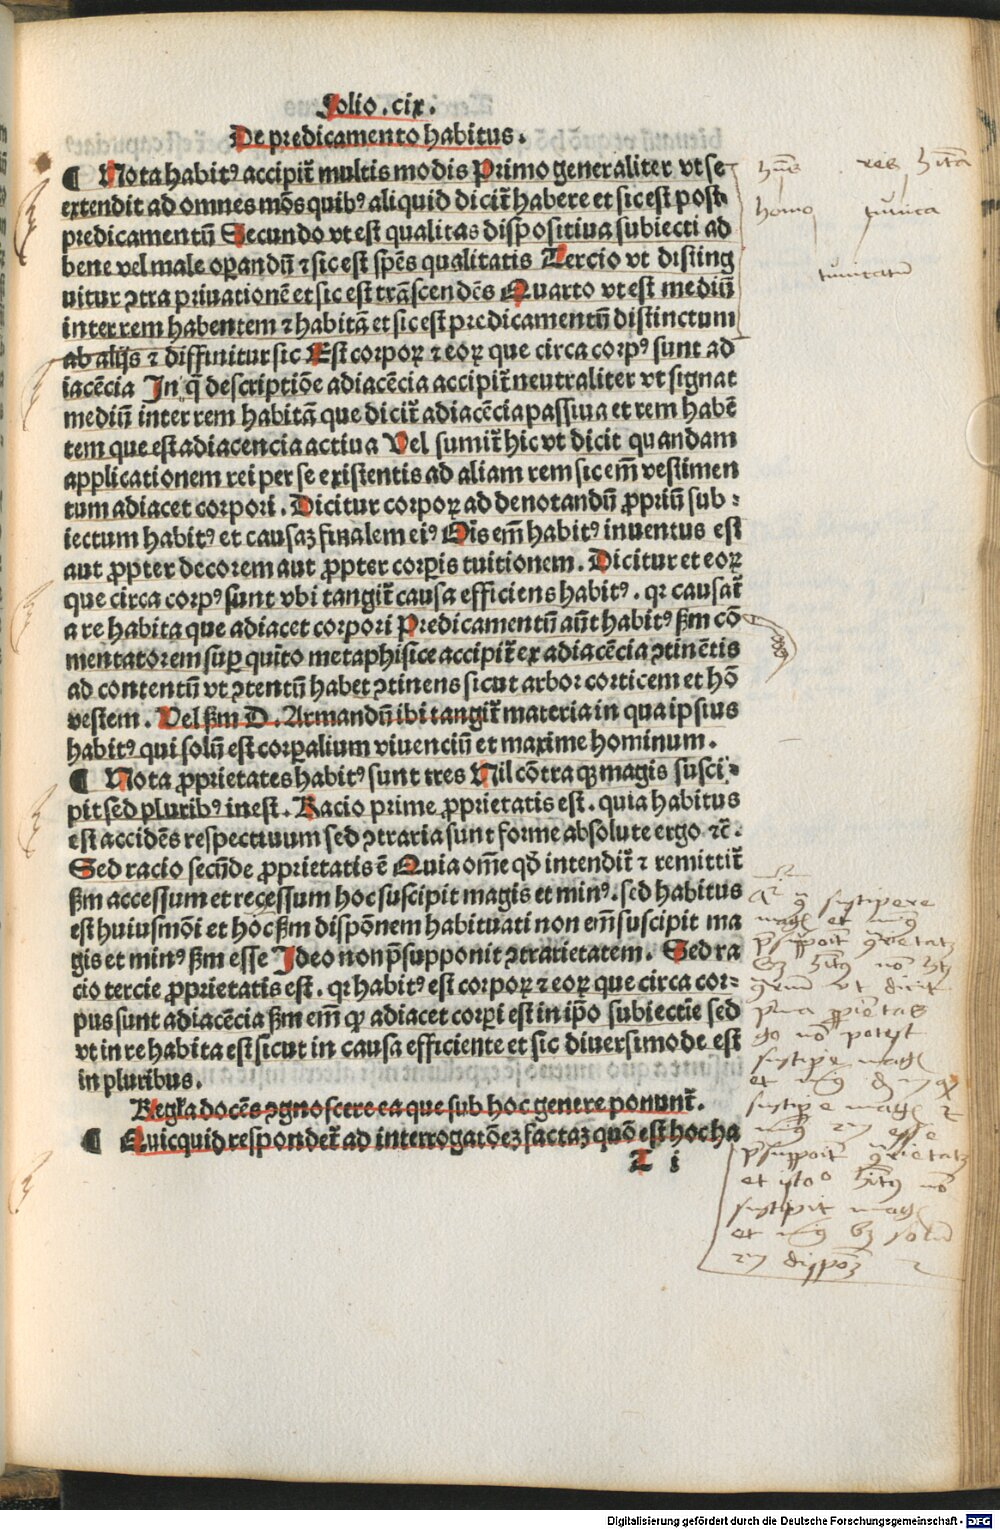 Folio .cix.
De predicamento habitus.
¶ Nota habitꝰ accipit̃ multis modis Primo generaliter vt se
extendit ad omnes mõs quibꝰ aliquid dicit̃ habere et sic est post
predicamentũ Secundo vt est qualitas dispositiua subiecti ad
bene vel male oꝑandũ ⁊ sic est spẽs qualitatis Tercio vt disting
uitur ꝯtra priuationẽ et sic est trãscendẽs Quarto vt est mediũ
inter rem habentem ⁊ habitã et sic est predicamentũ distinctum
ab alijs ⁊ diffinitur sic Est corpoꝝ ⁊ eoꝝ que circa corpꝰ sunt ad
iacẽcia In q̃ descriptiõe adiacẽcia accipit̃ neutraliter vt signat
mediũ inter rem habitã que dicit̃ adiacẽcia passiua et rem habẽ
tem que est adiacencia actiua Vel sumit̃ hic vt dicit quandam
applicationem rei per se existentis ad aliam rem sic em̃ vestimen
tum adiacet corpori. Dicitur corpoꝝ ad denotandũ ꝓpriũ sub-
iectum habitꝰ et causaꝫ finalem eiꝰ Ois em̃ habitꝰ inuentus est
aut ꝓpter decorem aut ꝓpter corꝑis tuitionem. Dicitur et eoꝝ
que circa corpꝰ sunt vbi tangit̃ causa efficiens habitꝰ. qꝛ causat̃
a re habita que adiacet corpori Predicamentũ aũt habitꝰ ẜm cõ
mentatorem suꝑ quĩto metaphisice accipit̃ ex adiacẽcia ꝯtinẽtis
ad contentũ vt ꝯtentũ habet ꝯtinens sicut arbor corticem et hõ
vestem. Vel ẜm D. Armandũ ibi tangit̃ materia in qua ipsius
habitꝰ qui solũ est corꝑalium viuenciũ et maxime hominum.
¶ Nota ꝓprietates habitꝰ sunt tres Nil cõtra qꝫ magis susci-
pit sed pluribꝰ inest. Racio prime ꝓprietatis est. quia habitus
est accidẽs respectiuum sed ꝯtraria sunt forme absolute ergo ⁊c̃.
Sed racio secũde ꝓprietatis ẽ Quia om̃e qõ intendit̃ ⁊ remittit̃
ẜm accessum et recessum hoc suscipit magis et minꝰ. sed habitus
est huiusmõi et hoc ẜm dispõnem habituati non em̃ suscipit ma
gis et minꝰ ẜm esse Ideo non p̃supponit ꝯtrarietatem. Sed ra
cio tercie ꝓprietatis est. qꝛ habitꝰ est corpoꝝ ⁊ eoꝝ que circa cor-
pus sunt adiacẽcia ẜm em̃ ꝙ adiacet corꝑi est in ip̃o subiectiẽ sed
vt in re habita est sicut in causa efficiente et sic diuersimode est
in pluribus.
Regl̃a docẽs ꝯgnoscere ea que sub hoc genere ponunt̃.
¶ Quicquid respondet̃ ad interrogatõeꝫ factaꝫ quõ est hoc ha
T i
hñs res hitã
homo tunica
tunicatũ
suscipere
mag et
p̃supponit
nõ
vt dicit
pma ꝓpietas
nõ potest
suscipe mag
et
suscipe mag
esse
p̃supponit
et nõ
suscipit mag
et
Digitalisierung gefördert durch die Deutsche Forschungsgemeinschaft - DFG